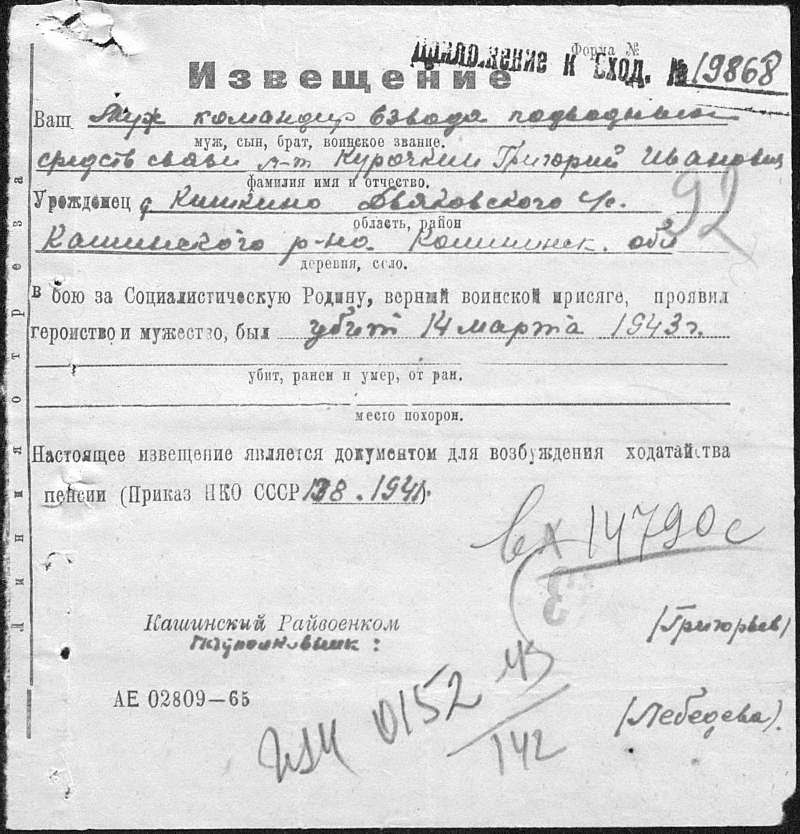 Форма №
Приложение к Сход. № 19868
Извещение
Ваш Муж командир взвода подводных
муж, сын, брат, воинское звание.
средств связи л-т Курочкин Григорий Иванович
фамилия имя и отчество.
Урожденец д. Кишкино Дьяковского с/с.
область, район
Кашинского р-на. Калининск. обл
92
деревня, село.
в бою за Социалистическую Родину, верный воинской присяге, проявил
героиство и мужество, был убит 14 марта 1943 г.
убит, ранен и умер, от ран.
место похорон.
Настоящее извещение является документом для возбуждения ходатайства
пенсии (Приказ НКО СССР 138 - 1941).
вх 14790с
Кашинский Райвоенком
(Григорьев)
АЕ 02809—65
0152
142
(Лебедева).
Линия отреза